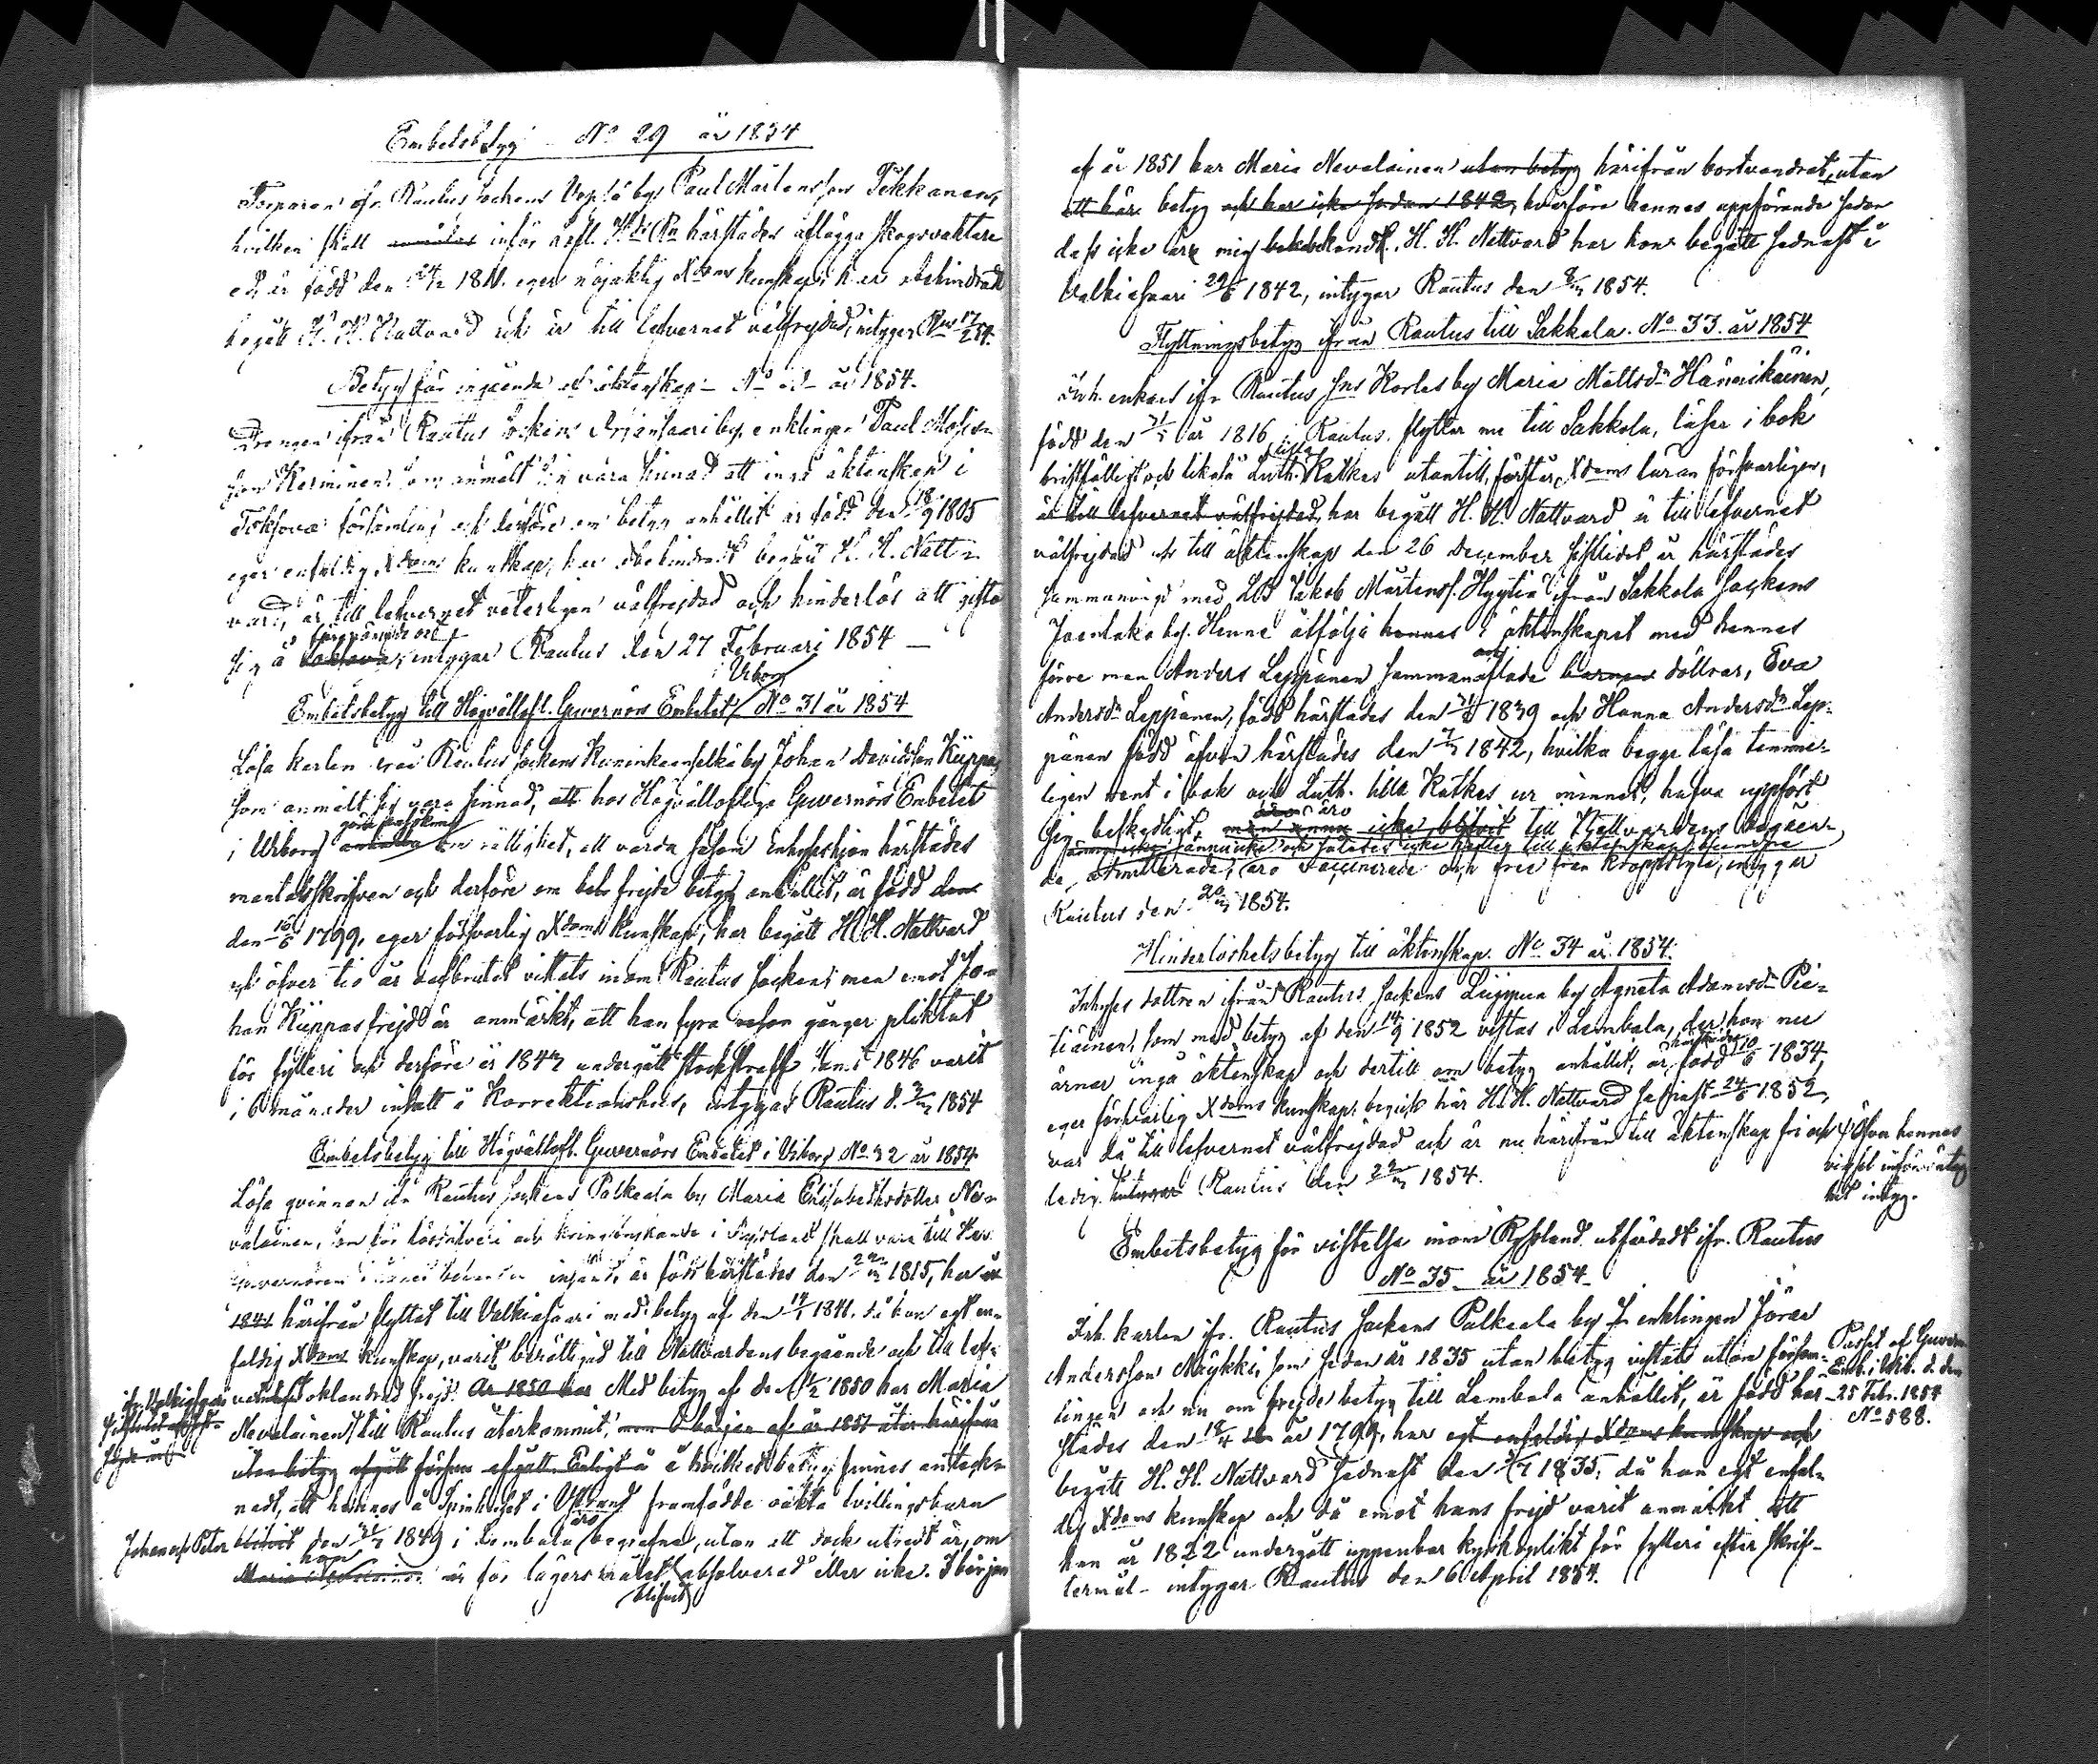 Embetsbetyg No 29 år 1854
Torparen ifr. Rautus Sockens by Paul Mårtensson Tikkanen,
hvilken skall inför härstädes aflägga skogsvaktare
ed, är född den 1811. eger nöjaktig Xdoms kunskap, har obehindradt
begått H. H. Nattvard och är till lefvernet välfrejdad, intygar
Betyg för ingående af äktenskap No år 1854.
Drängen ifrån Rautus Sockens Orjansaari by, enklingen Paul
son som anmält sig vara sinnad att ingå äktenskap i
Toksova församling och derföre om betyg anhållit är född den 18/9 1805
eger enfaldig Xdoms kunskap, har obehindradt begått H. H. Natt-
vard, är till lefvernet veterligen välfrejdad och hinderlös att gifta
sig å Toksova, intygar Rautus den 27 Februari 1854
i Viborg
Embetsbetyg till Högvällofl. Guvernörs Embetet No 31 år 1854
Lösa karlen ifrån Rautus Sockens Kuninkaanselkä by Johan Davidsson Küppa,
som anmält sig vara sinnad, att hos Högvällofliga Guvernörs Embetet
göra ansökning
i Wiborg anhålla om rättighet, att varda såsom Inhyseshjon härstädes
mantalsskrifven och derföre om frejde betyg anhållit, är född den
den 16/6 1799, eger försvarlig Xdoms kunskap, har begått H. H. Nattvard
och öfver tio år oafbrutet vistats inom Rautus Socken; men emot Jo-
han Küppas frejd är anmärkt, att han fyra resor gånger pliktat
för fylleri och derföre år 1847 undergått stockstraff samt 1846 varit
i 6 månader insatt å Korrektionshus, intygas Rautus d. 3/3 1854
Embetsbetyg till Högvällofl. Guvernörs Embetet i Viborg No 32 år 1854
Lösa qvinnan ifr Rautus Sockens Palkeala by Maria Elisabethsdotter Ne-
valainen, som för lösdrifveri och kringstrykande i Ryssland skall vara till Herr
Guvernören i länet insänd, är född härstädes den 22/3 1815, har år
1841 härifrån flyttat till Valkiasaari med betyg af den 14/1 1841. då hon egt en-
faldig Xdoms kunskap, varit berättigad till Nattvardens begående och till lef-
ifr. Valkiasaari
vernet oklandrad frejd. År 1850 har Med betyg af den 1850 har Maria
Nevalainen till Rautus återkommit, men i början af år 1851 åter härifrån
utan betyg afgått å hvilket betyg finnes anteck-
nadt, att hennes å Spinhuset i Ryssland framfödde oäkta tvillingsbarn
äro
Johan och Peter blifvit den 1849 i Lembala begrafna, utan att dock utredt är, om
hon
Maria Nevalainen är för lägersmålet absolverad eller icke. I början
blifvit
af år 1851 har Maria Nevalainen utan betyg härifrån bortvandrat, utan
att här betyg och har icke sedan 1842, hvarföre hennes uppförande sedan
dess icke är mig bekandt. H. H. Nattvard har hon begått sednast i
Valkiasaari 29/6 1842, intygar Rautus den 8/3 1854.
Flyttningsbetyg ifrån Rautus till Sakkola. No 33. år 1854
Inh. enkan ifr Rautus Sns Korles by Maria Mattsdr Hännikäinen,
född den år 1816 i Rautus. flyttar nu till Sakkola, läser i bok
lilla
bristfälligt och likaså Luth. Katkes utantill, förstår Xdoms läran försvarligen,
är till lefvernet välfrejdad, har begått H. H. Nattvard är till lefvernet
välfrejdad och till äktenskap den 26 December sistlidet år härstädes
sammanvigd med Jakob Mårtenss. Hyytiä ifrån Sakkola Sockens
Joentaka by. Henne åtfölja hennes i äktenskapet med hennes
förre man Anders Leppänen sammanaflade barnen döttrar, Eva
Andersdr Leppänen, född härstädes den 1839 och Hanna Andersdr Lep-
pänen född äfven härstädes den 1842, hvilka begge läsa temme-
ligen rent i bok och Luth. lilla Katkes ur minnet, hafva uppfört
äro
sig beskedligt, men ännu icke blifvit till Nattvardens begåen-
de admitterade, äro vaccinerade och frie från kroppslyte, intygar
Rautus den 20/3 1854.
Hinderlöshetsbetyg till äktenskap. No 34 år 1854.
Inhyses dottren ifrån Rautus Sockens Leippua by Agneta Adamsdr Pie-
tiäinen, som med betyg af den 14/9 1852 vistas i Lembala, der hon nu
härstädes
ärnar ingå äktenskap och dertill om betyg anhållit, är född 1834,
eger försvarlig Xdoms kunskap, begick här H. H. Nattvard sednast 24/6 1852,
var då till lefvernet välfrejdad och är nu härifrån till äktenskap fri och
ledig. Intygar Rautus den 22/3 1854.
Embetsbetyg för vistelse inom Ryssland utfärdadt ifr. Rautus
No 35 år 1854
Inh. karlen ifr. Rautus Sockens Palkeala by enklingen Jöran
Andersson Mäykki, som sedan år 1835 utan betyg vistats utom försam-
lingen och nu om frejde betyg till Lembala anhållit, är född här-
städes den 18/4 år 1799, har egt enfaldig Xdoms kunskap och
begått H. H. Nattvard sednast den 1835, då han egt enfal-
dig Xdoms kunskap och då emot hans frejd varit anmärkt att
han år 1822 undergått uppenbar kyrkoplikt för fylleri efter skrif-
termål intygar Rautus den 6 April 1854.
Passet af Guvern.
Emb. i Wib. d. den
25 Febr. 1854
No 588.